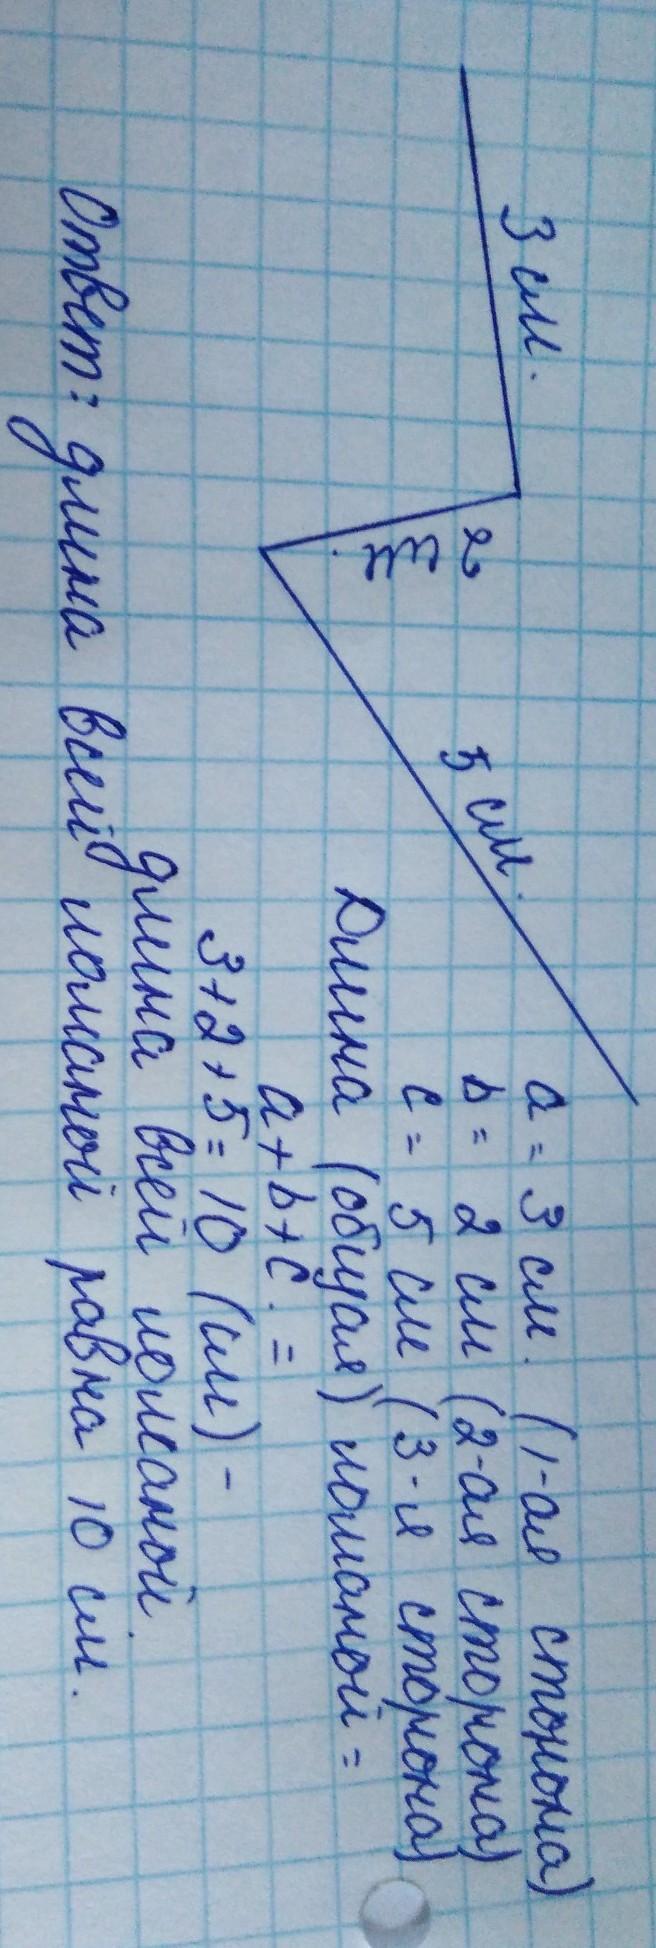 3 см.
2 см.
5 см.
a = 3 см. (1-ая стонона)
b = 2 см (2-ая сторона)
c = 5 см (3-я сторона)
Длина (общая) ломаной =
a + b + c. =
3 + 2 + 5 = 10 (см) -
длина всей ломаной.
Ответ: длина всей ломаной равна 10 см.